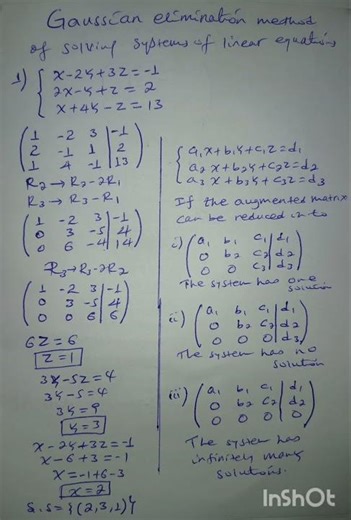 Gaussian elimination method
of solving systems of linear equations
1) { x-2y+3z=-1
2x-y+z=2
x+4y-z=13
( 1 -2 3 | -1
2 -1 1 | 2
1 4 -1 | 13 )
R2 → R2-2R1
R3 → R3-R1
( 1 -2 3 | -1
0 3 -5 | 4
0 6 -4 | 14 )
R3→R3-2R2
( 1 -2 3 | -1
0 3 -5 | 4
0 0 6 | 6 )
6z=6
z=1
3y-5z=4
3y-5=4
3y=9
y=3
x-2y+3z=-1
x-6+3=-1
x=-1+6-3
x=2
S.S={(2,3,1)}
{ a1x+b1y+c1z=d1
a2x+b2y+c2z=d2
a3x+b3y+c3z=d3
If the augmented matrix
can be reduced in to
i) ( a1 b1 c1 | d1
0 b2 c2 | d2
0 0 c3 | d3 )
The system has one
solution
ii) ( a1 b1 c1 | d1
0 b2 c2 | d2
0 0 0 | d3 )
The system has no
solution
iii) ( a1 b1 c1 | d1
0 b2 c2 | d2
0 0 0 | 0 )
The system has
infinitely many
solutions.
InShOt